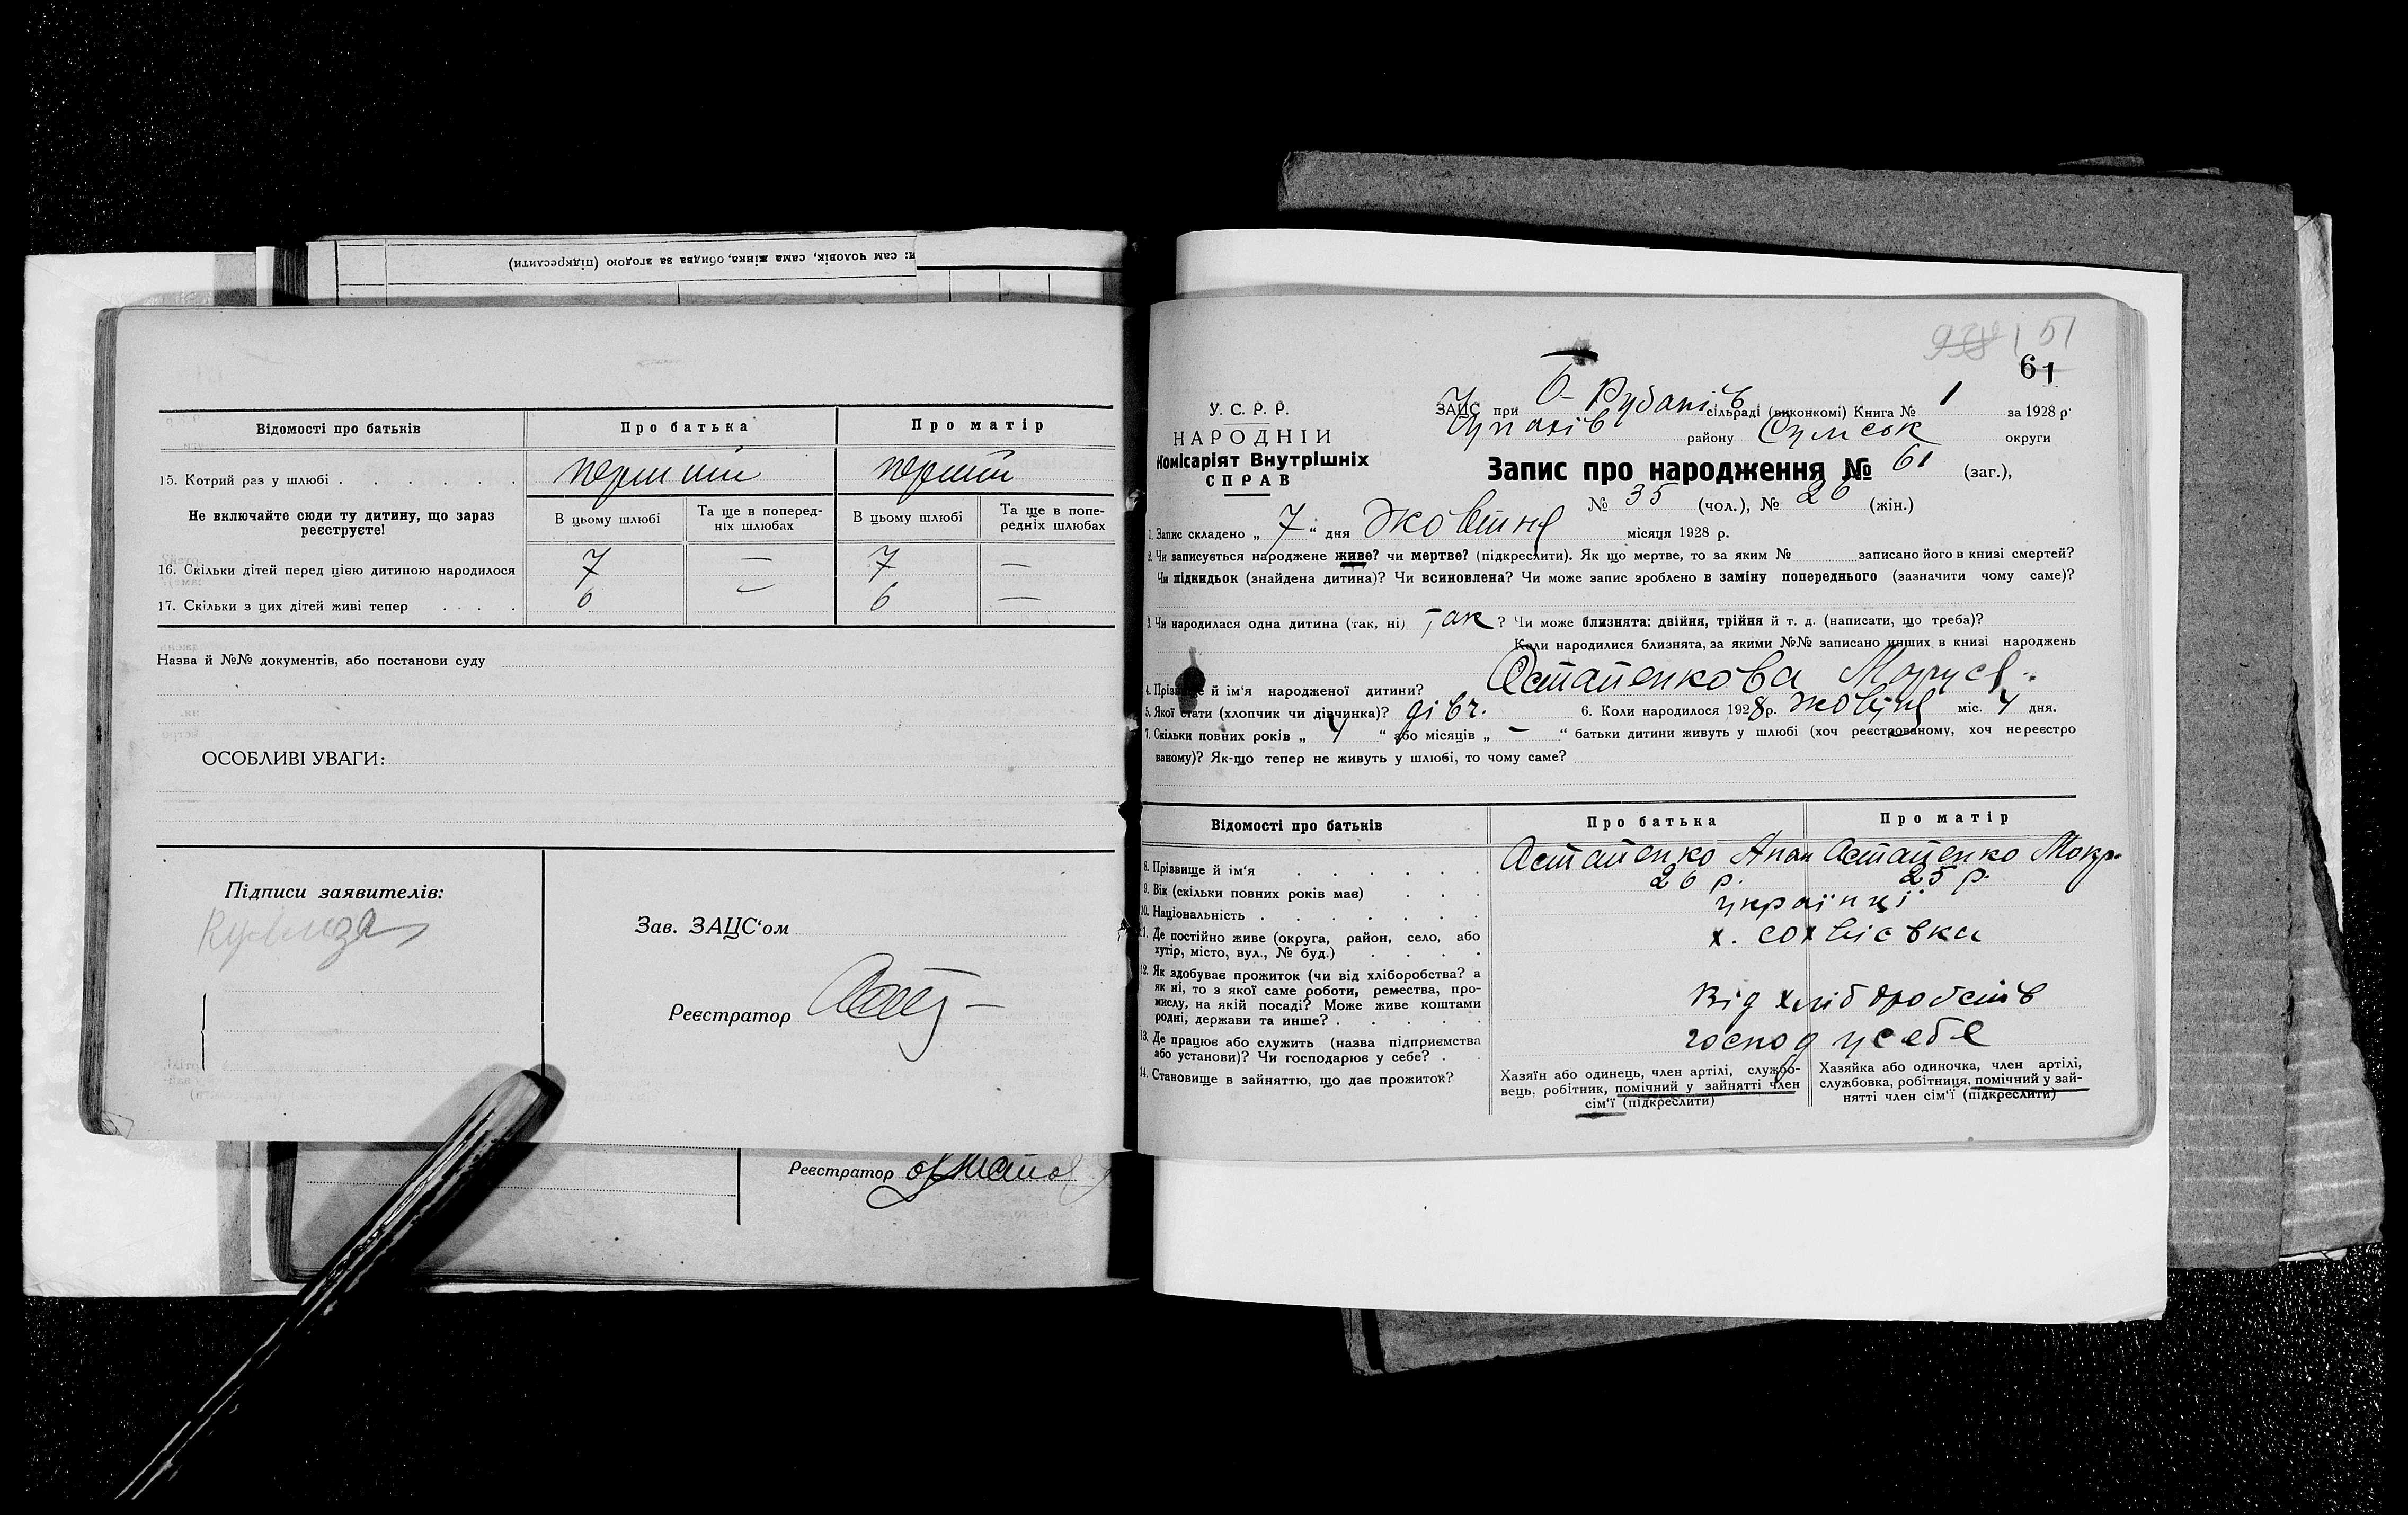 и: сам чоловік, сама жінка, обидва за згодою (підкреслити)
Відомості про батьків
Про батька
Про матір
15. Котрий раз у шлюбі
перший
перший
Не включайте сюди ту дитину, що зараз реєструєте!
В цьому шлюбі
Та ще в поперед-
ніх шлюбах
В цьому шлюбі
Та ще в попе-
редніх шлюбах
16. Скільки дітей перед цією дитиною народилося 7 — 7 —
17. Скільки з цих дітей живі тепер 6 — 6 —
Назва й №№ документів, або постанови суду
ОСОБЛИВІ УВАГИ:
Підписи заявителів:
Зав. ЗАЦС'ом
Реєстратор
Реєстратор
51
61
У. С. Р. Р.
НАРОДНІЙ
Комісаріят Внутрішніх
СПРАВ
ЗАЦС при Рубанів сільраді (виконкомі) Книга № 1 за 1928 р.
Чупахів району Сумськ округи
Запис про народження № 61 (заг.),
№ 35 (чол.), № 26 (жін.)
1. Запис складено „ 7 “ дня Жовтня місяця 1928 р.
2. Чи записується народжене живе? чи мертве? (підкреслити). Як що мертве, то за яким № записано його в книзі смертей?
Чи підкидьок (знайдена дитина)? Чи всиновлена? Чи може запис зроблено в заміну попереднього (зазначити чому саме)?
3. Чи народилася одна дитина (так, ні) Так ? Чи може близнята: двійня, трійня й т. д. (написати, що треба)?
Коли народилися близнята, за якими №№ записано инших в книзі народжень
4. Прізвище й ім'я народженої дитини? Остапенкова Моруся
5. Якої стати (хлопчик чи дівчинка)? дівч. 6. Коли народилося 1928 р. жовтня міс. 4 дня.
7. Скільки повних років „ 4 “ або місяців „ — “ батьки дитини живуть у шлюбі (хоч реєстрованому, хоч нереєстро
ваному)? Як-що тепер не живуть у шлюбі, то чому саме?
Відомості про батьків
Про батька
Про матір
8. Прізвище й ім'я
Остапенко Апан Остапенко Мокр.
9. Вік (скільки повних років має) 26 р. 25 р.
10. Національність українці
11. Де постійно живе (округа, район, село, або
хутір, місто, вул., № буд.)
х.
12. Як здобуває прожиток (чи від хліборобства? а
як ні, то з якої саме роботи, ремества, про-
мислу, на якій посаді? Може живе коштами
родні, держави та инше?
Від хліборобств
13. Де працює або служить (назва підприємства
або установи)? Чи господарює у себе?
господ у себе
14. Становище в зайняттю, що дає прожиток?
Хазяїн або одинець, член артілі, службо-
вець, робітник, помічний у зайнятті член
сім'ї (підкреслити)
Хазяйка або одиночка, член артілі,
службовка, робітниця, помічний у зай-
нятті член сім'ї (підкреслити)